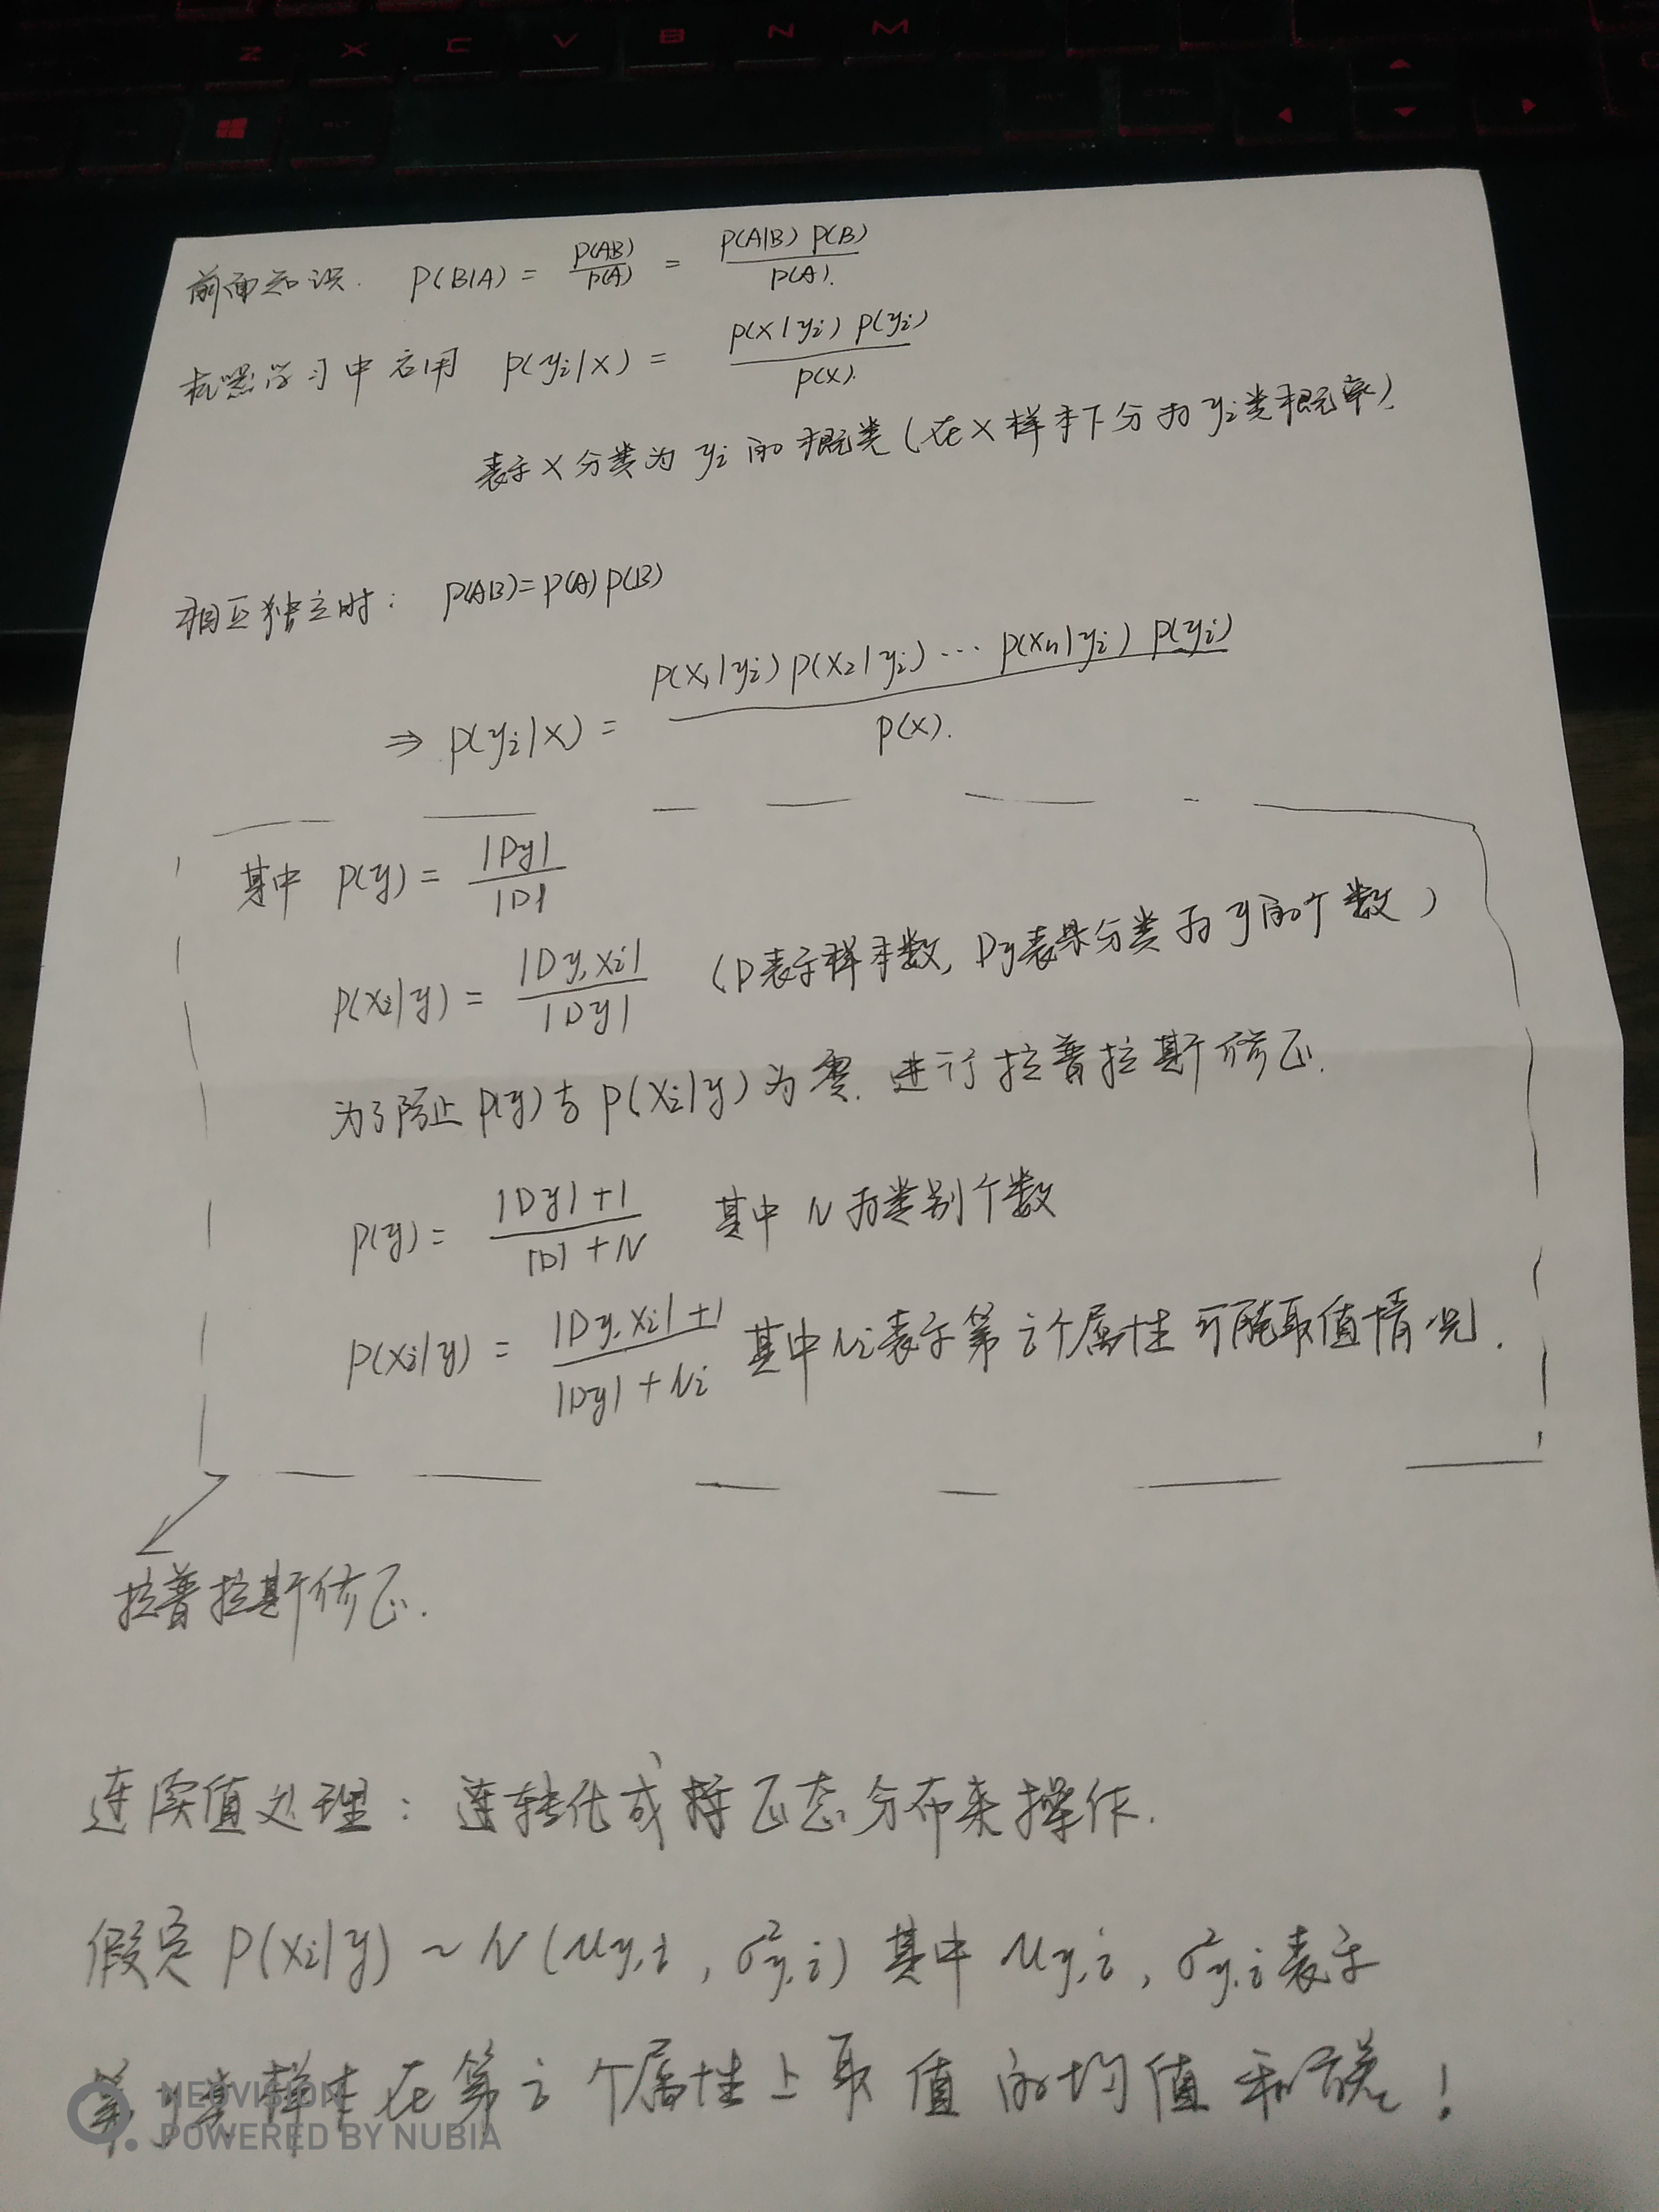 Z X C V B N M
ALT CTRL
FN ALT
前面知识. P(B|A) = P(AB)/P(A) = P(A|B) P(B)/P(A).
机器学习中应用 P(yi|X) = P(X|yi) P(yi)/P(X).
表示X分类为yi的概类(在X样本下分为yi类概率).
相互独立时: P(AB)=P(A)P(B)
⇒ P(yi|X) = P(X1|yi) P(X2|yi) ··· P(Xn|yi) P(yi)/P(X).
其中 P(y) = |Dy|/|D|
P(Xi|y) = |Dy,Xi|/|Dy| (D表示样本数, Dy表示分类为y的个数)
为了防止P(y)与P(Xi|y)为零. 进行拉普拉斯修正.
P(y) = |Dy|+1/|D|+N 其中N为类别个数
P(Xi|y) = |Dy,Xi|+1/|Dy|+Ni 其中Ni表示第i个属性可能取值情况.
拉普拉斯修正.
连续值处理: 连转化成将正态分布来操作.
假定 P(Xi|y) ~ N(μy,i , σ²y,i) 其中 μy,i , σ²y,i 表示
第y类样本在第i个属性上取值的均值和方差!
NEOVISION
POWERED BY NUBIA